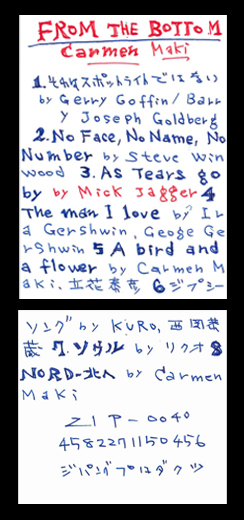 FROM THE BOTTOM
Carmen Maki
1. それはスポットライトではない
by Gerry Goffin/Barr
y Joseph Goldberg
2. No Face, No Name, No
Number by Steve Win
wood 3. As Tears go
by by Mick Jagger 4
The man I love by Ir
a Gershwin, Geoge Ge
rshwin 5 A bird and
a flower by Carmen M
aki, 立花泰彦 6 ジプシー
ソング by KURO, 西岡恭
蔵 7. ソウル by リクオ 8
NORD-北へ by Carmen
Maki
ZIP-0040
4582271150456
ジパングプロダクツ